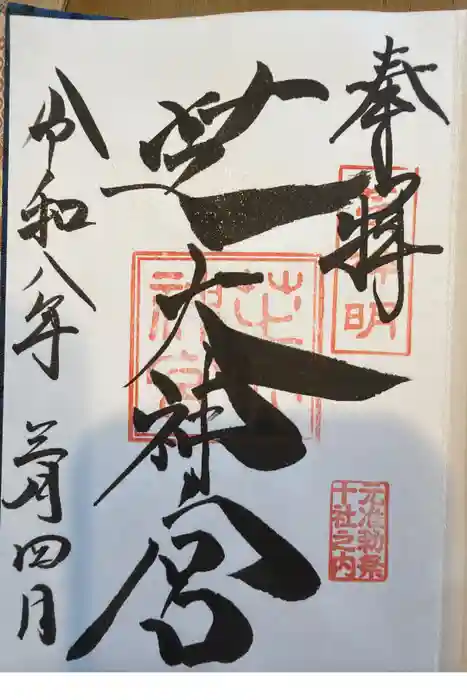 奉拝
芝神明
元准勅祭
十社之内
芝大神宮
芝大
神宮
令和八年 三月四日